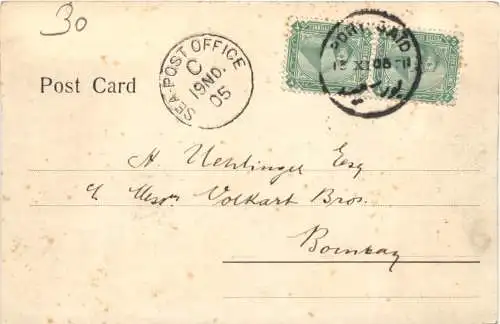 30
SEA-POST OFFICE
C
19 NO.
05
PORT-SAID
Post Card
H. Uehlinger Esq
c/o Messrs Volkart Bros.
Bombay